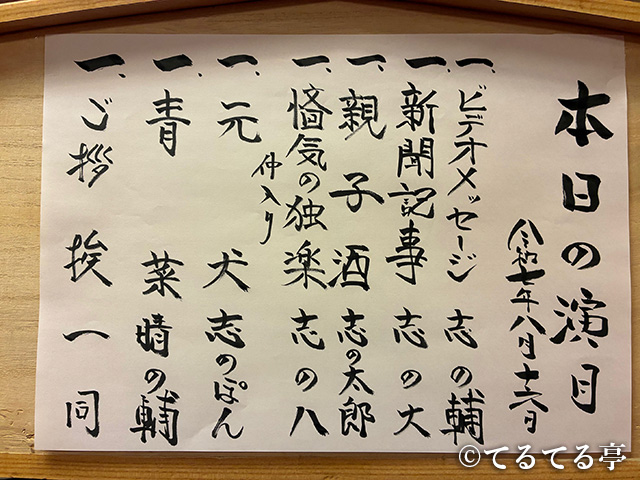 本日の演目
令和七年八月十六日
一、ビデオメッセージ 志の輔
一、新聞記事 志の大
一、親子酒 志の太郎
一、悋気の独楽 志の八
仲入り
一、元犬 志のぽん
一、青菜 晴の輔
一、ご挨拶 一同
©てるてる亭